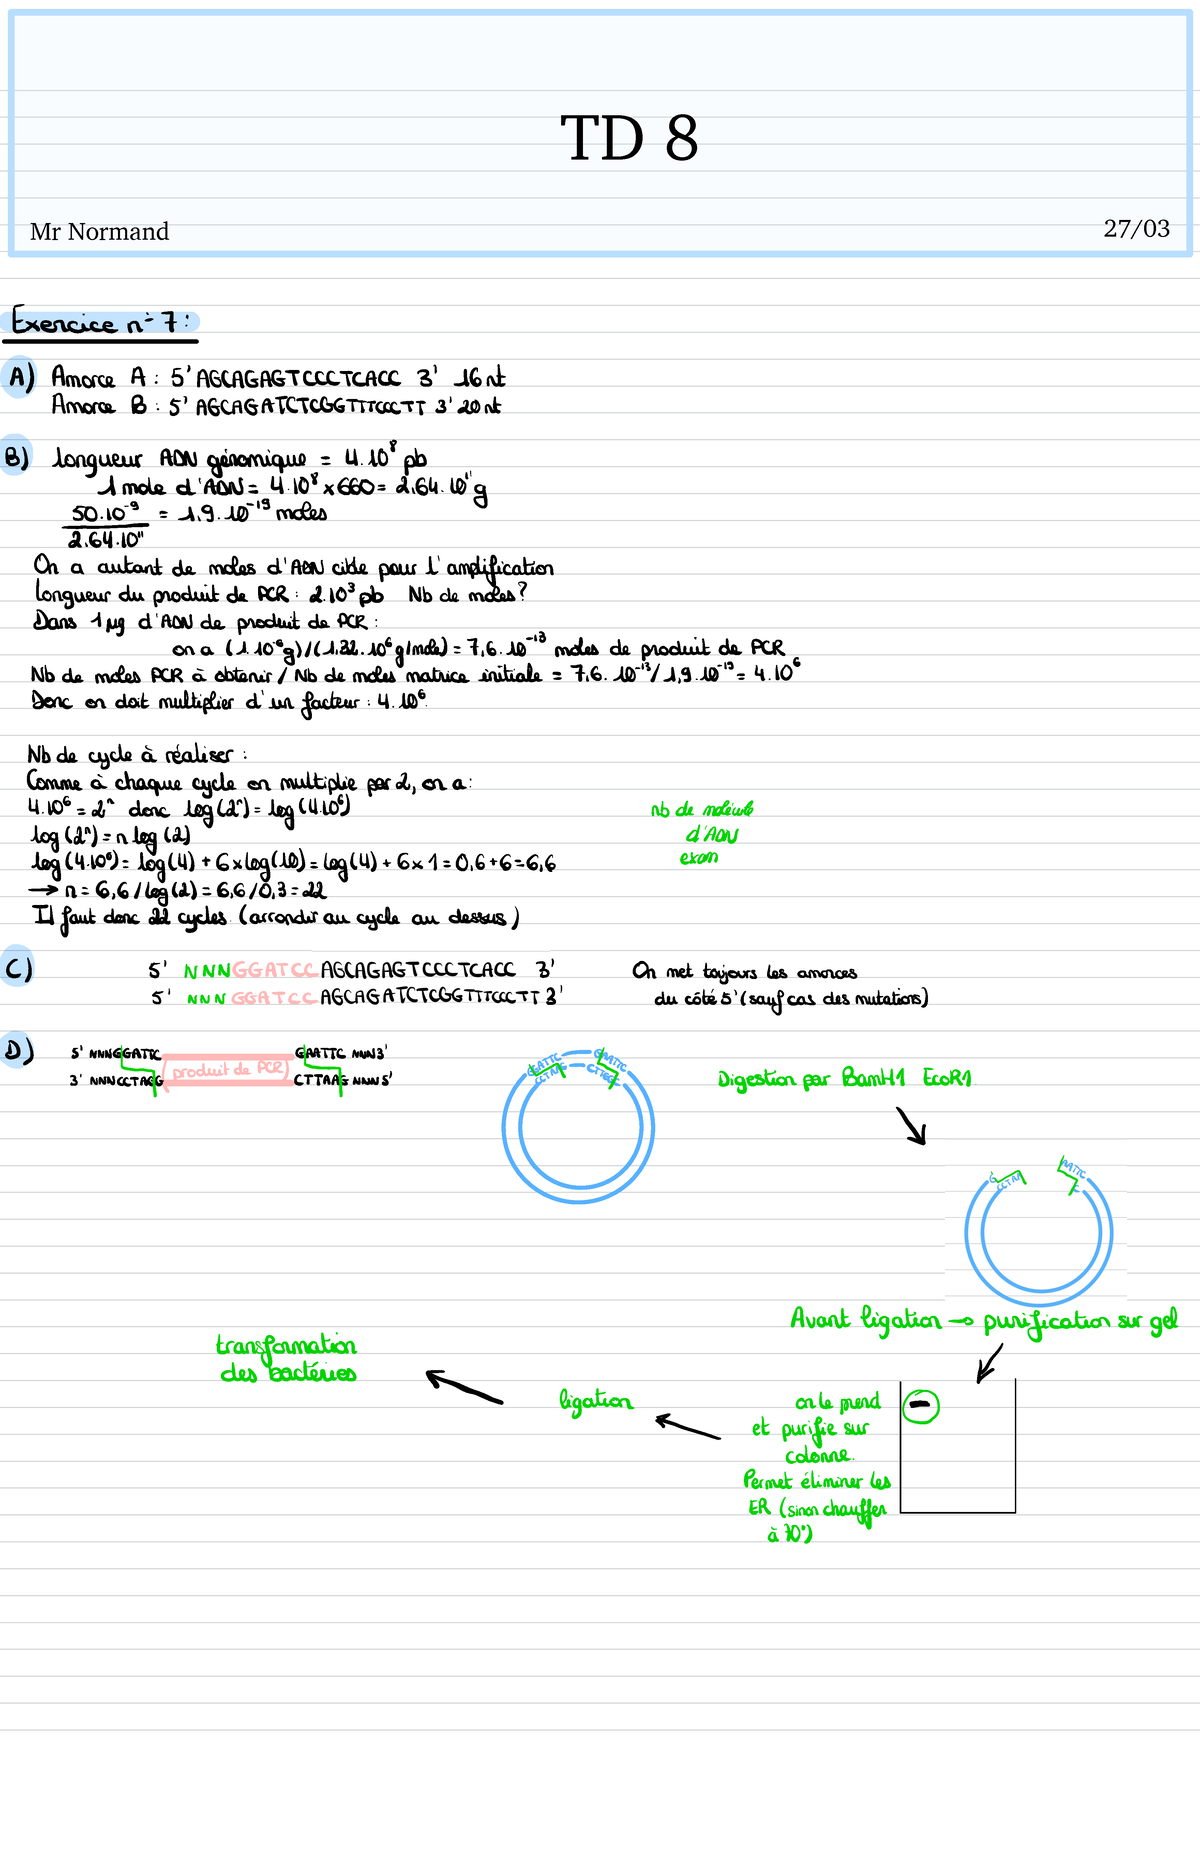 TD 8
Mr Normand
27/03
Exercice n° 7 :
A) Amorce A : 5' AGCAGAGTCCCTCACC 3' 16 nt
Amorce B : 5' AGCAGATCTCGGTTTCCCTT 3' 20 nt
B) longueur ADN génomique = 4.10⁸ pb
1 mole d'ADN = 4.10⁸ x 660 = 2,64.10¹¹ g
50.10⁻⁹ / 2.64.10¹¹ = 1,9.10⁻¹⁹ moles
On a autant de moles d'ADN cible pour l'amplification
Longueur du produit de PCR : 2.10³ pb Nb de moles ?
Dans 1 µg d'ADN de produit de PCR :
on a (1.10⁻⁶g)/(1,32.10⁶g/mole) = 7,6.10⁻¹³ moles de produit de PCR
Nb de moles PCR à obtenir / Nb de moles matrice initiale = 7,6.10⁻¹³/1,9.10⁻¹⁹ = 4.10⁶
Donc on doit multiplier d'un facteur : 4.10⁶.
Nb de cycle à réaliser :
Comme à chaque cycle on multiplie par 2, on a :
4.10⁶ = 2ⁿ donc log(2ⁿ) = log(4.10⁶)
nb de molécule
d'ADN
exam
log(2ⁿ) = n log(2)
log(4.10⁶) = log(4) + 6 x log(10) = log(4) + 6 x 1 = 0,6 + 6 = 6,6
→ n = 6,6 / log(2) = 6,6 / 0,3 = 22
Il faut donc 22 cycles. (arrondir au cycle au dessus)
C) 5' NNNGGATCC AGCAGAGTCCCTCACC 3'
5' NNN GGATCC AGCAGATCTCGGTTTCCCTT 3'
On met toujours les amorces
du côté 5' (sauf cas des mutations)
D) 5' NNNGGATTC GAATTC NNN3'
(produit de PCR)
3' NNNCCTAGG CTTAAG NNN5'
Digestion par BamH1 EcoR1
AATTC
Avant ligation → purification sur gel
on le prend
et purifie sur
colonne.
Permet éliminer les
ER (sinon chauffer
à 70°)
ligation
transformation
des bactéries